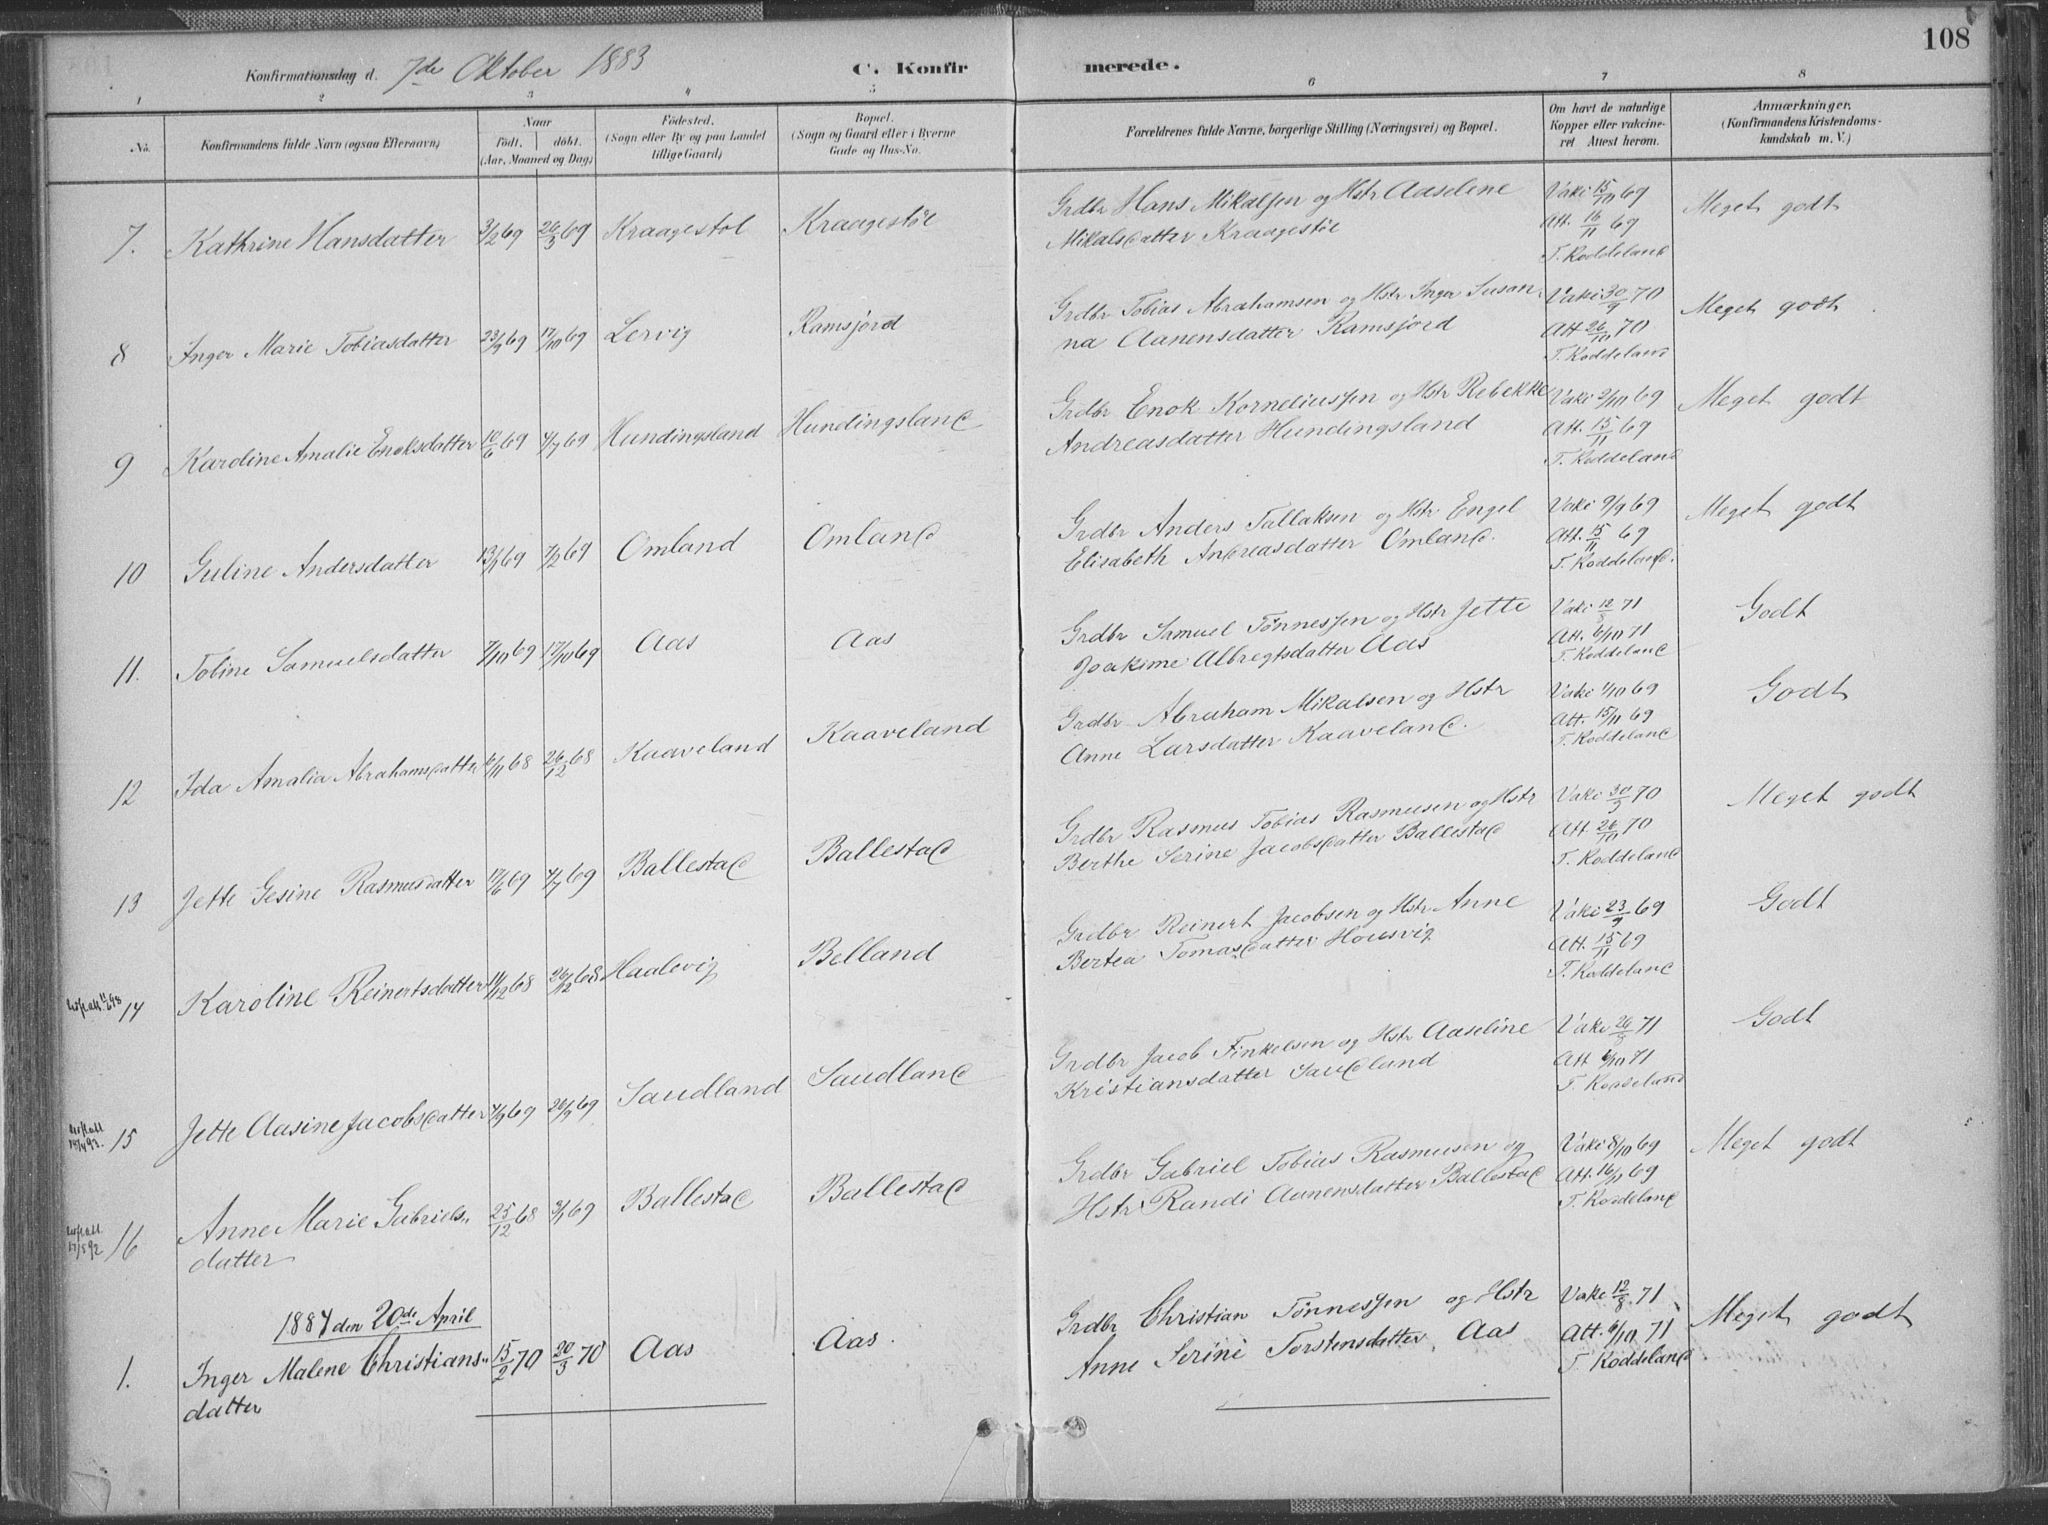 108
Konfirmationsdag d. 7de Oktober 1883 C. Konfirmerede.
1 2 3 4 5 6 7 8
No. Konfirmandens fulde Navn (ogsaa Efternavn)
Naar
Födt. döbt.
(Aar, Maaned og Dag)
Födested.
(Sogn eller By og paa Landet
tillige Gaard)
Bopæl.
(Sogn og Gaard eller i Byerne
Gade og Hus-No.
Forældrenes fulde Navne, borgerlige Stilling (Næringsvei) og Bopæl.
Om havt de naturlige
Kopper eller vakcine-
ret Attest herom.
Anmærkninger.
(Konfirmandens Kristendoms-
kundskab m. V.)
7. Kathrine Hansdatter 3/2 69 26/3 69 Kraagestöl Kraagestöl
Grdbr Hans Mikalsen og Hstr Aaselene
Mikalsdatter Kraagestöl
Vaki 15/10 69
Att. 16/11 69
T. Koddeland
Meget godt
8 Inger Marie Tobiasdatter 23/9 69 17/10 69 Lervig Ramsjord
Grdbr Tobias Abrahamsen og Hstr Inger Susan
na Aanensdatter Ramsjord
Vaki 30/9 70
Att 26/10 70
T. Koddeland
Meget godt
9 Karoline Amalie Enoksdatter 10/6 69 4/7 69 Hundingsland Hundingsland
Grdbr Enok Korneliussen og Hstr Rebekke
Andreasdatter Hundingsland
Vaki 2/10 69
Att. 15/11 69
T. Koddeland
Meget godt
10 Guline Andersdatter 13/1 69 7/2 69 Omland Omland
Grdbr Anders Tallaksen og Hstr Engel
Elisabeth Andreasdatter Omland.
Vaki 9/9 69
Att. 15/11 69
T. Koddeland.
Meget godt
11. Tobine Samuelsdatter 7/10 69 17/10 69 Aas Aas
Grdbr Samuel Tönnessen og Hstr Jette
Joakime Albregtsdatter Aas
Vaki 12/8 71
Att. 6/10 71
T. Koddeland
Godt
12 Ida Amalia Abrahamsdatter 6/11 68 26/12 68 Kaaveland Kaaveland
Grdbr Abraham Mikalsen og Hstr
Anne Larsdatter Kaaveland.
Vaki 1/10 69
Att. 15/11 69
T. Koddeland
Godt
13 Jette Gesine Rasmusdatter 17/6 69 4/7 69 Ballestad Ballestad
Grdbr Rasmus Tobias Rasmusen og Hstr
Berthe Serine Jacobsdatter Ballestad
Vaki 30/9 70
Att. 26/10 70
T. Koddeland
Meget godt
14 Karoline Reinertsdatter 11/12 68 26/12 68 Haalevig Belland
Grdbr Reinert Jacobsen og Hstr Anne
Bertea Tomasdatter Housvig
Vaki 23/9 69
Att. 15/11 69
T. Koddeland
Godt
15 Jette Aasine Jacobsdatter 4/9 69 26/9 69 Saudland Saudland
Grdbr Jacob Finkelsen og Hstr Aaseline
Kristiansdatter Saudland
Vaki 26/8 71
Att 6/10 71
T. Koddeland
Godt
16 Anne Marie Gabriels„
datter
25/12 68 3/1 69 Ballestad Ballestad
Grdbr Gabriel Tobias Rasmusen og
Hstr Randi Aanensdatter Ballestad
Vaki 8/10 69
Att. 16/11 69
T. Koddeland
Meget godt
1884 den 20de April
1. Inger Malene Christians„
datter
15/2 70 20/3 70 Aas Aas.
Grdbr Christian Tønnessen og Hstr
Anne Serine Torstensdatter Aas
Vaki 12/8 71
Att. 6/10 71
T. Koddeland
Meget godt